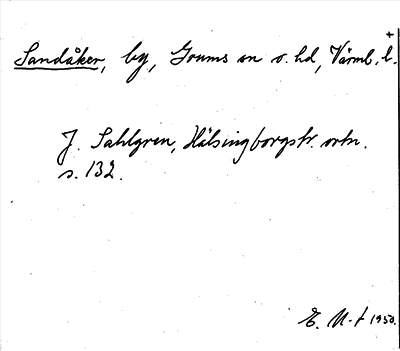 Sandåker, by, Grums sn o. hd, Värml. l. +
J. Sahlgren, Hälsingborgstr. ortn.
s. 132.
E. N-t 1950.